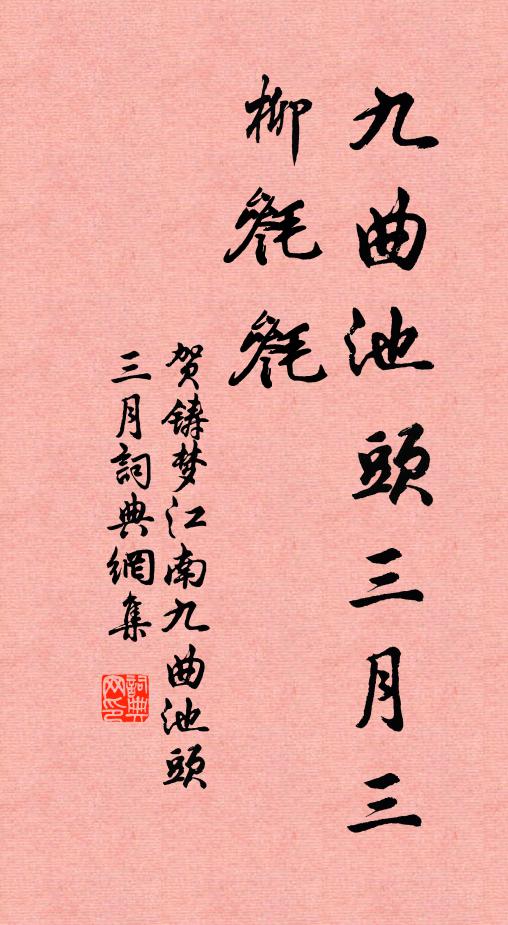 九曲池頭三月三
柳毵毵
贺铸梦江南九曲池頭
三月詞典網集
詞典网印